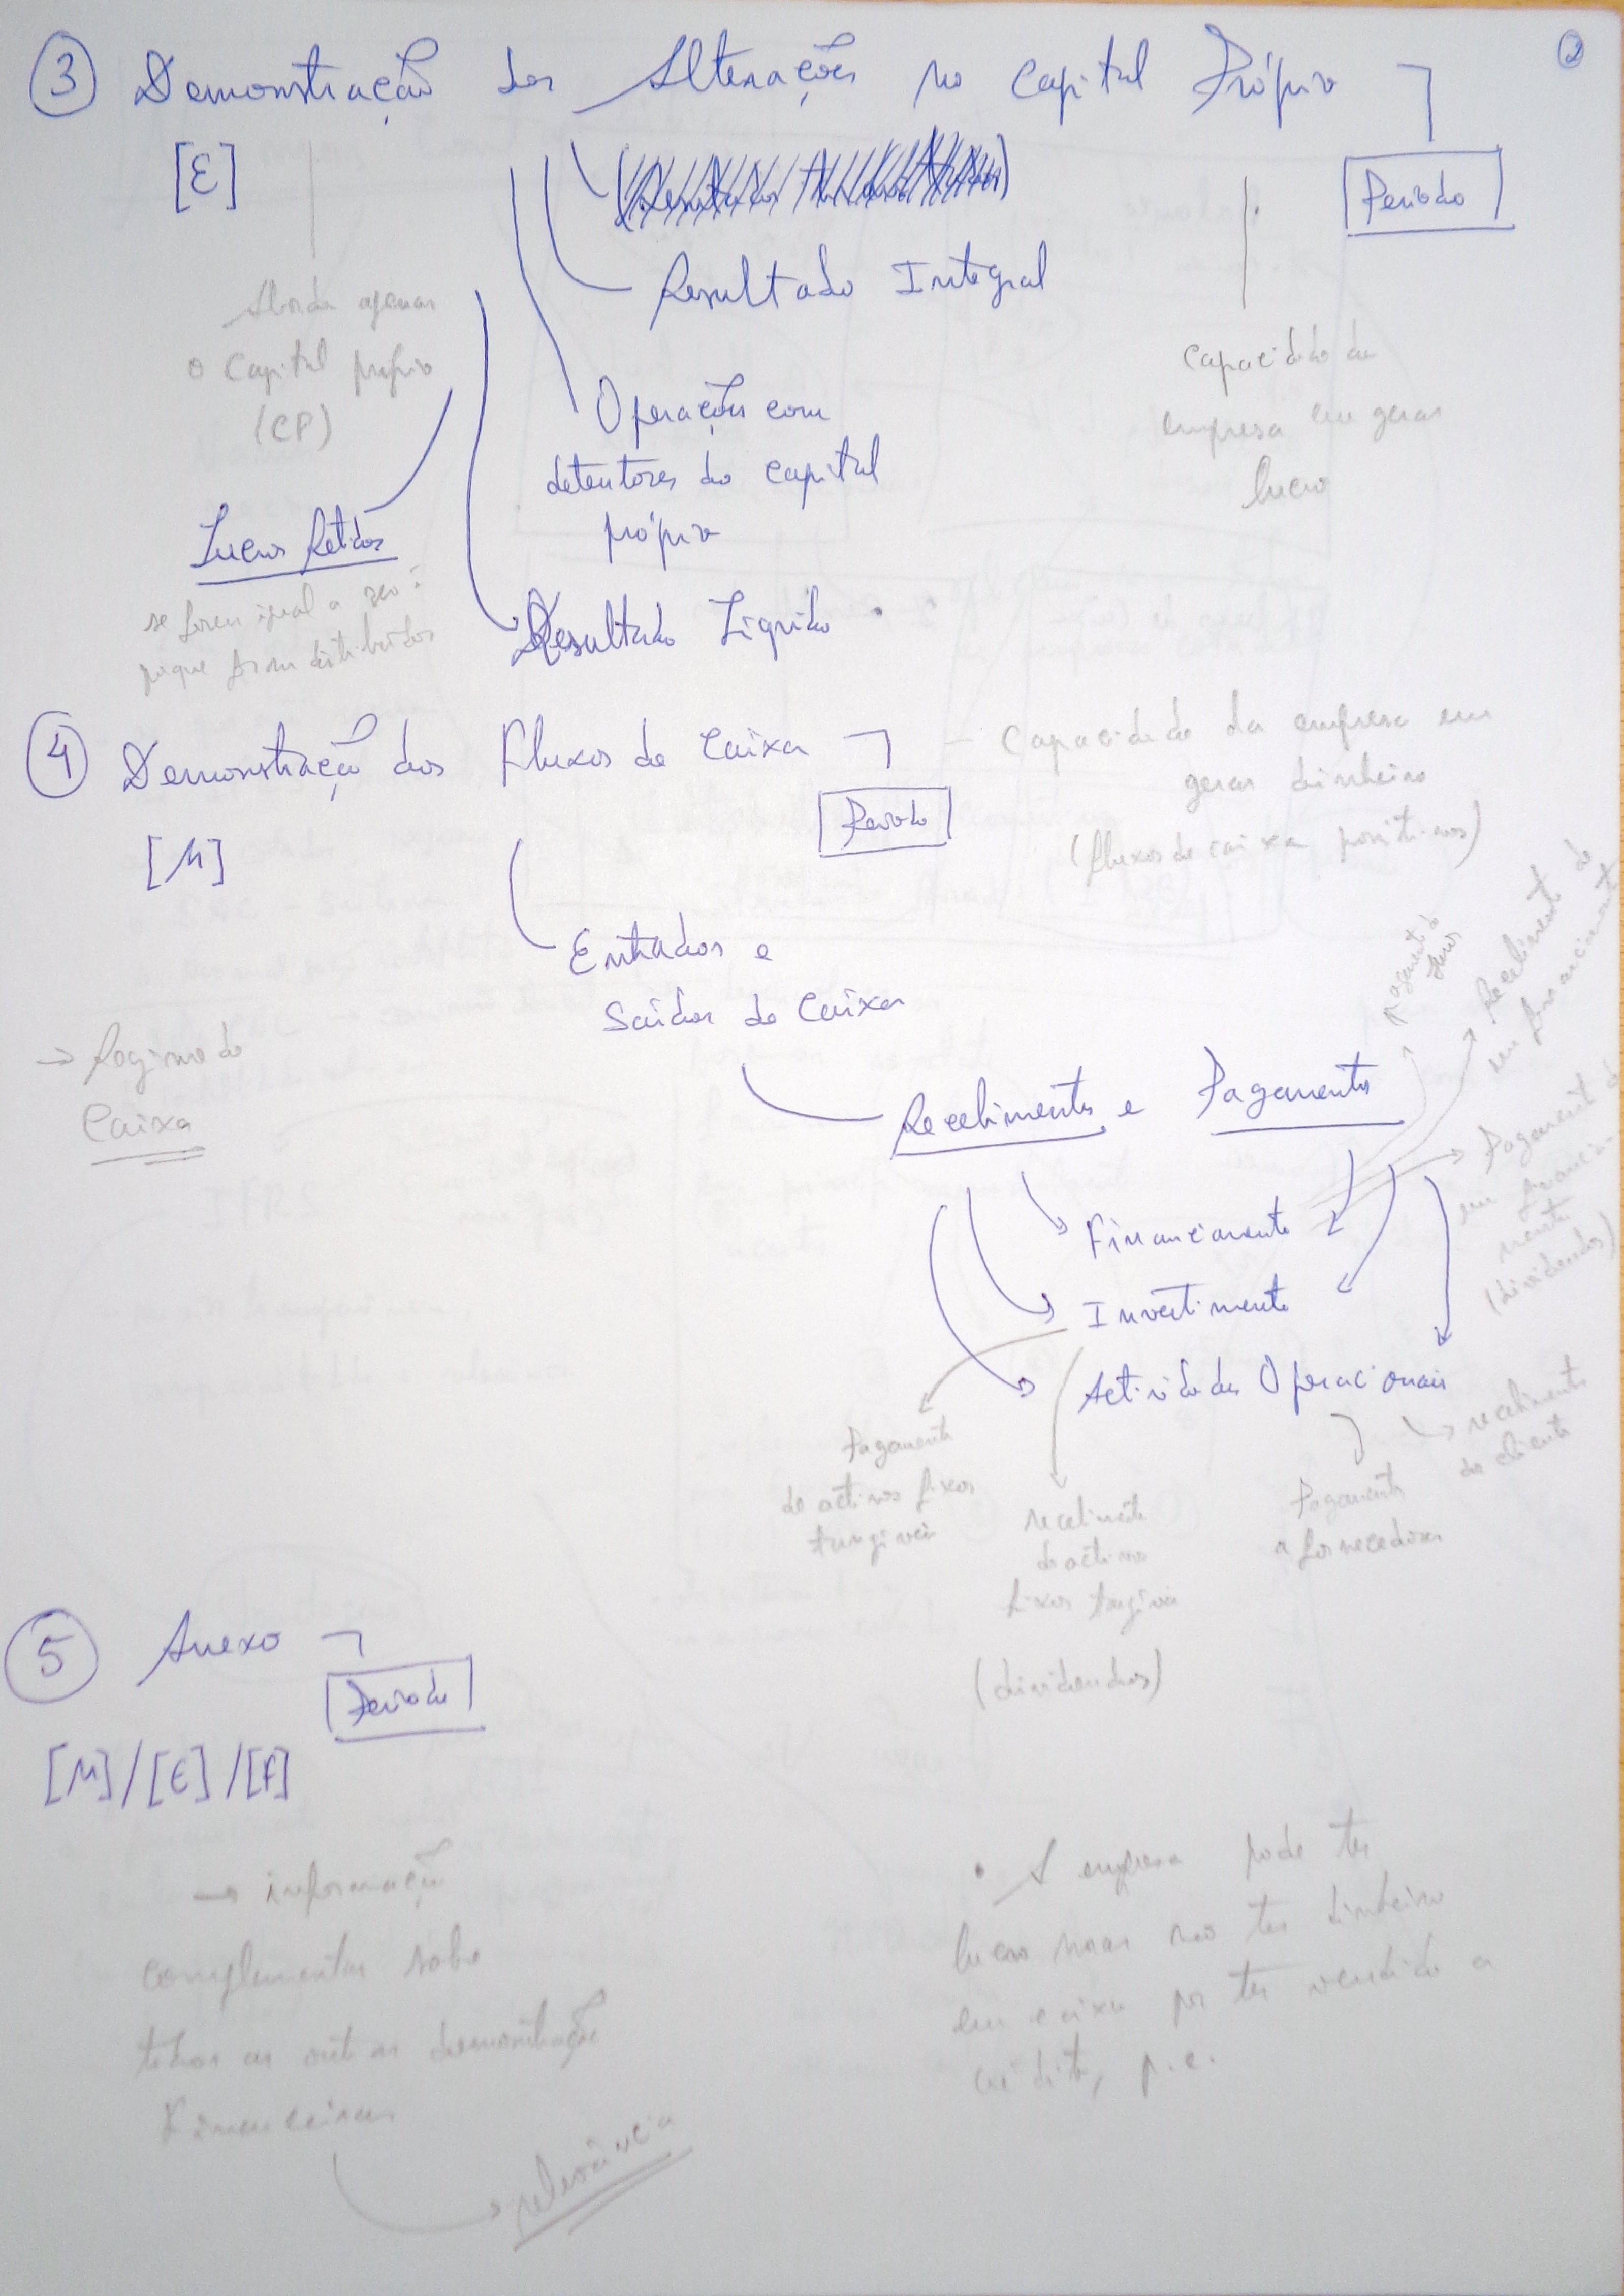 2
③ Demonstração das Alterações no Capital Próprio
[E]
Período
Resultado Integral
Aborda apenas
o Capital próprio
(CP)
capacidade da
empresa em gerar
lucro
Operações com
detentores do capital
próprio
Lucros Retidos
se forem igual a zero:
porque foram distribuídos
Resultado Líquido
④ Demonstração dos Fluxos de Caixa
- Capacidade da empresa em
gerar dinheiro
(fluxos de caixa positivos)
Período
[M]
Entradas e
Saídas de Caixa
→ Regime de
Caixa
Recebimentos e Pagamentos
Pagamento de
juros
Recebimento de
um financiamento
Pagamento de
um financia-
mento
(dividendos)
Financiamento
Investimento
Actividades Operacionais
Pagamento
de activos fixos
tangíveis
recebimento
de activos
fixos tangíveis
(dividendos)
Pagamento
a fornecedores
recebimento
de cliente
⑤ Anexo
Período
[M]/[E]/[F]
→ informação
complementar sobre
todas as outras demonstração
Financeiras
relevância
• A empresa pode ter
lucro mas não ter dinheiro
em caixa por ter vendido a
crédito, p.e.